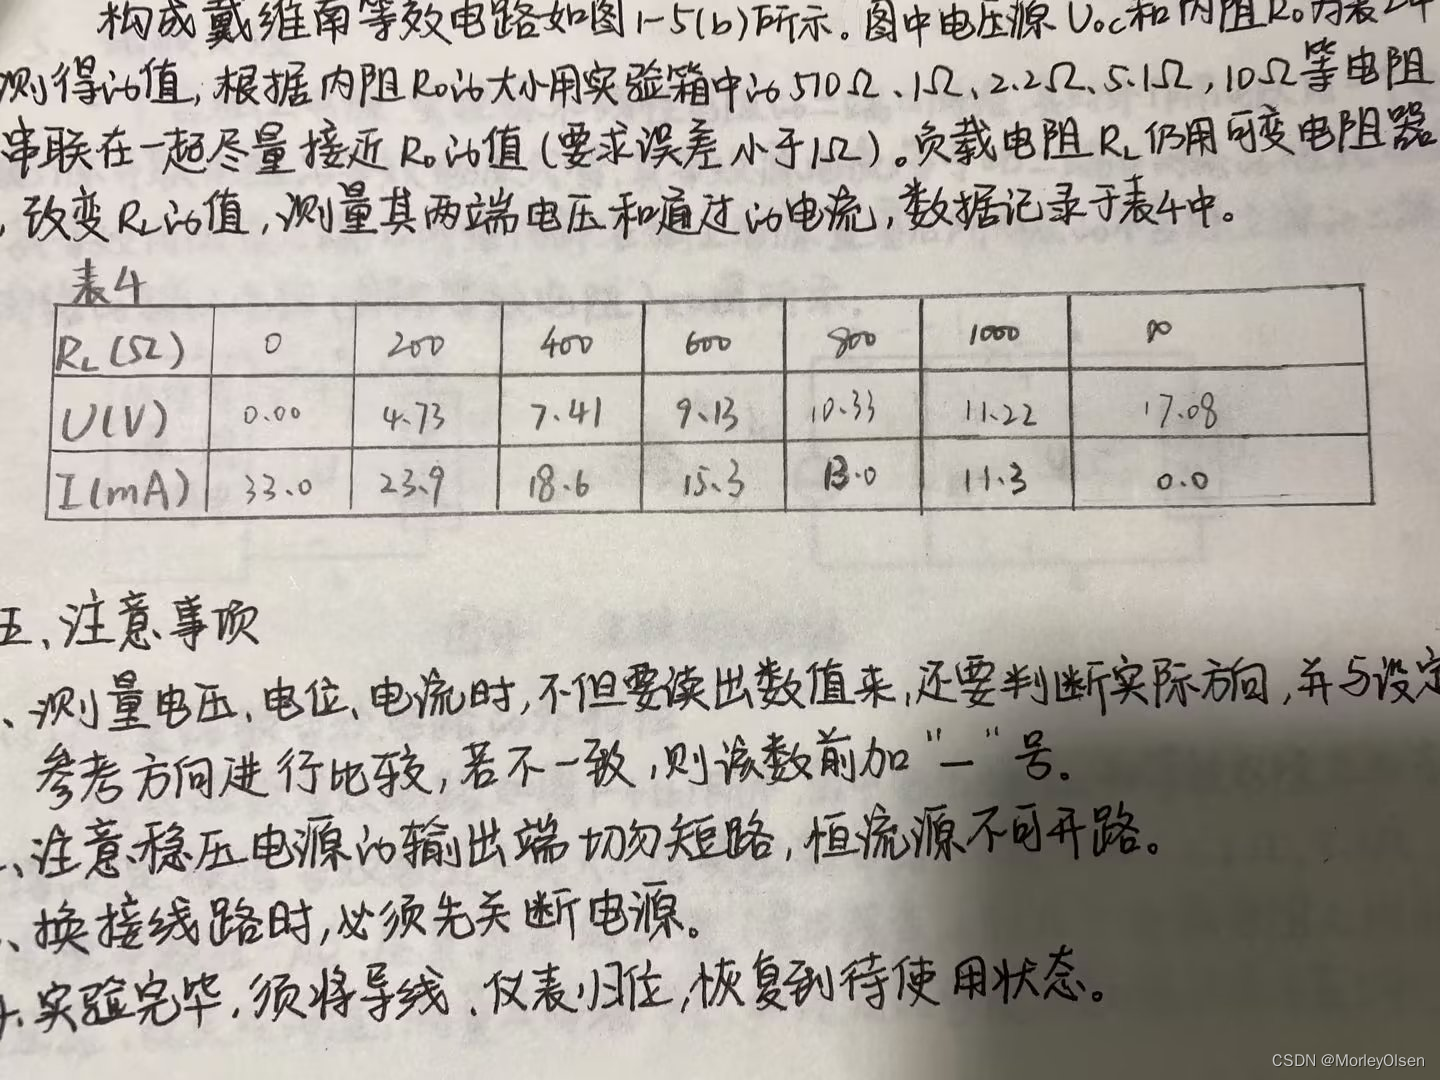 构成戴维南等效电路如图1-5(b)所示。图中电压源Uoc和内阻Ro为表2中
测得的值,根据内阻Ro的大小用实验箱中的510Ω、1Ω、2.2Ω、5.1Ω,10Ω等电阻
串联在一起尽量接近Ro的值(要求误差小于1Ω)。负载电阻RL仍用可变电阻器
,改变RL的值,测量其两端电压和通过的电流,数据记录于表4中。
表4
RL(Ω) 0 200 400 600 800 1000 ∞
U(V) 0.00 4.73 7.41 9.13 10.33 11.22 17.08
I(mA) 33.0 23.9 18.6 15.3 13.0 11.3 0.0
五、注意事项
、测量电压、电位、电流时,不但要读出数值来,还要判断实际方向,并与设定
参考方向进行比较,若不一致,则该数前加"-"号.
、注意稳压电源的输出端切勿短路,恒流源不可开路。
、换接线路时,必须先关断电源。
、实验完毕,须将导线、仪表归位,恢复到待使用状态。
CSDN @MorleyOlsen